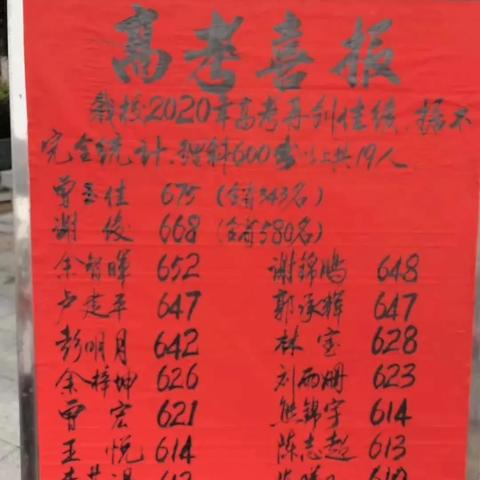 高考喜报
我校2020年高考再创佳绩,据不
完全统计,理科600分以上共19人
曾 佳 675 (全省343名)
谢俊 668 (全省580名)
余智晖 652 谢锦鹏 648
卢建平 647 郭承辉 647
彭明月 642 林宝 628
余梓坤 626 刘雨姗 623
曾宏 621 熊锦宇 614
王悦 614 陈志超 613